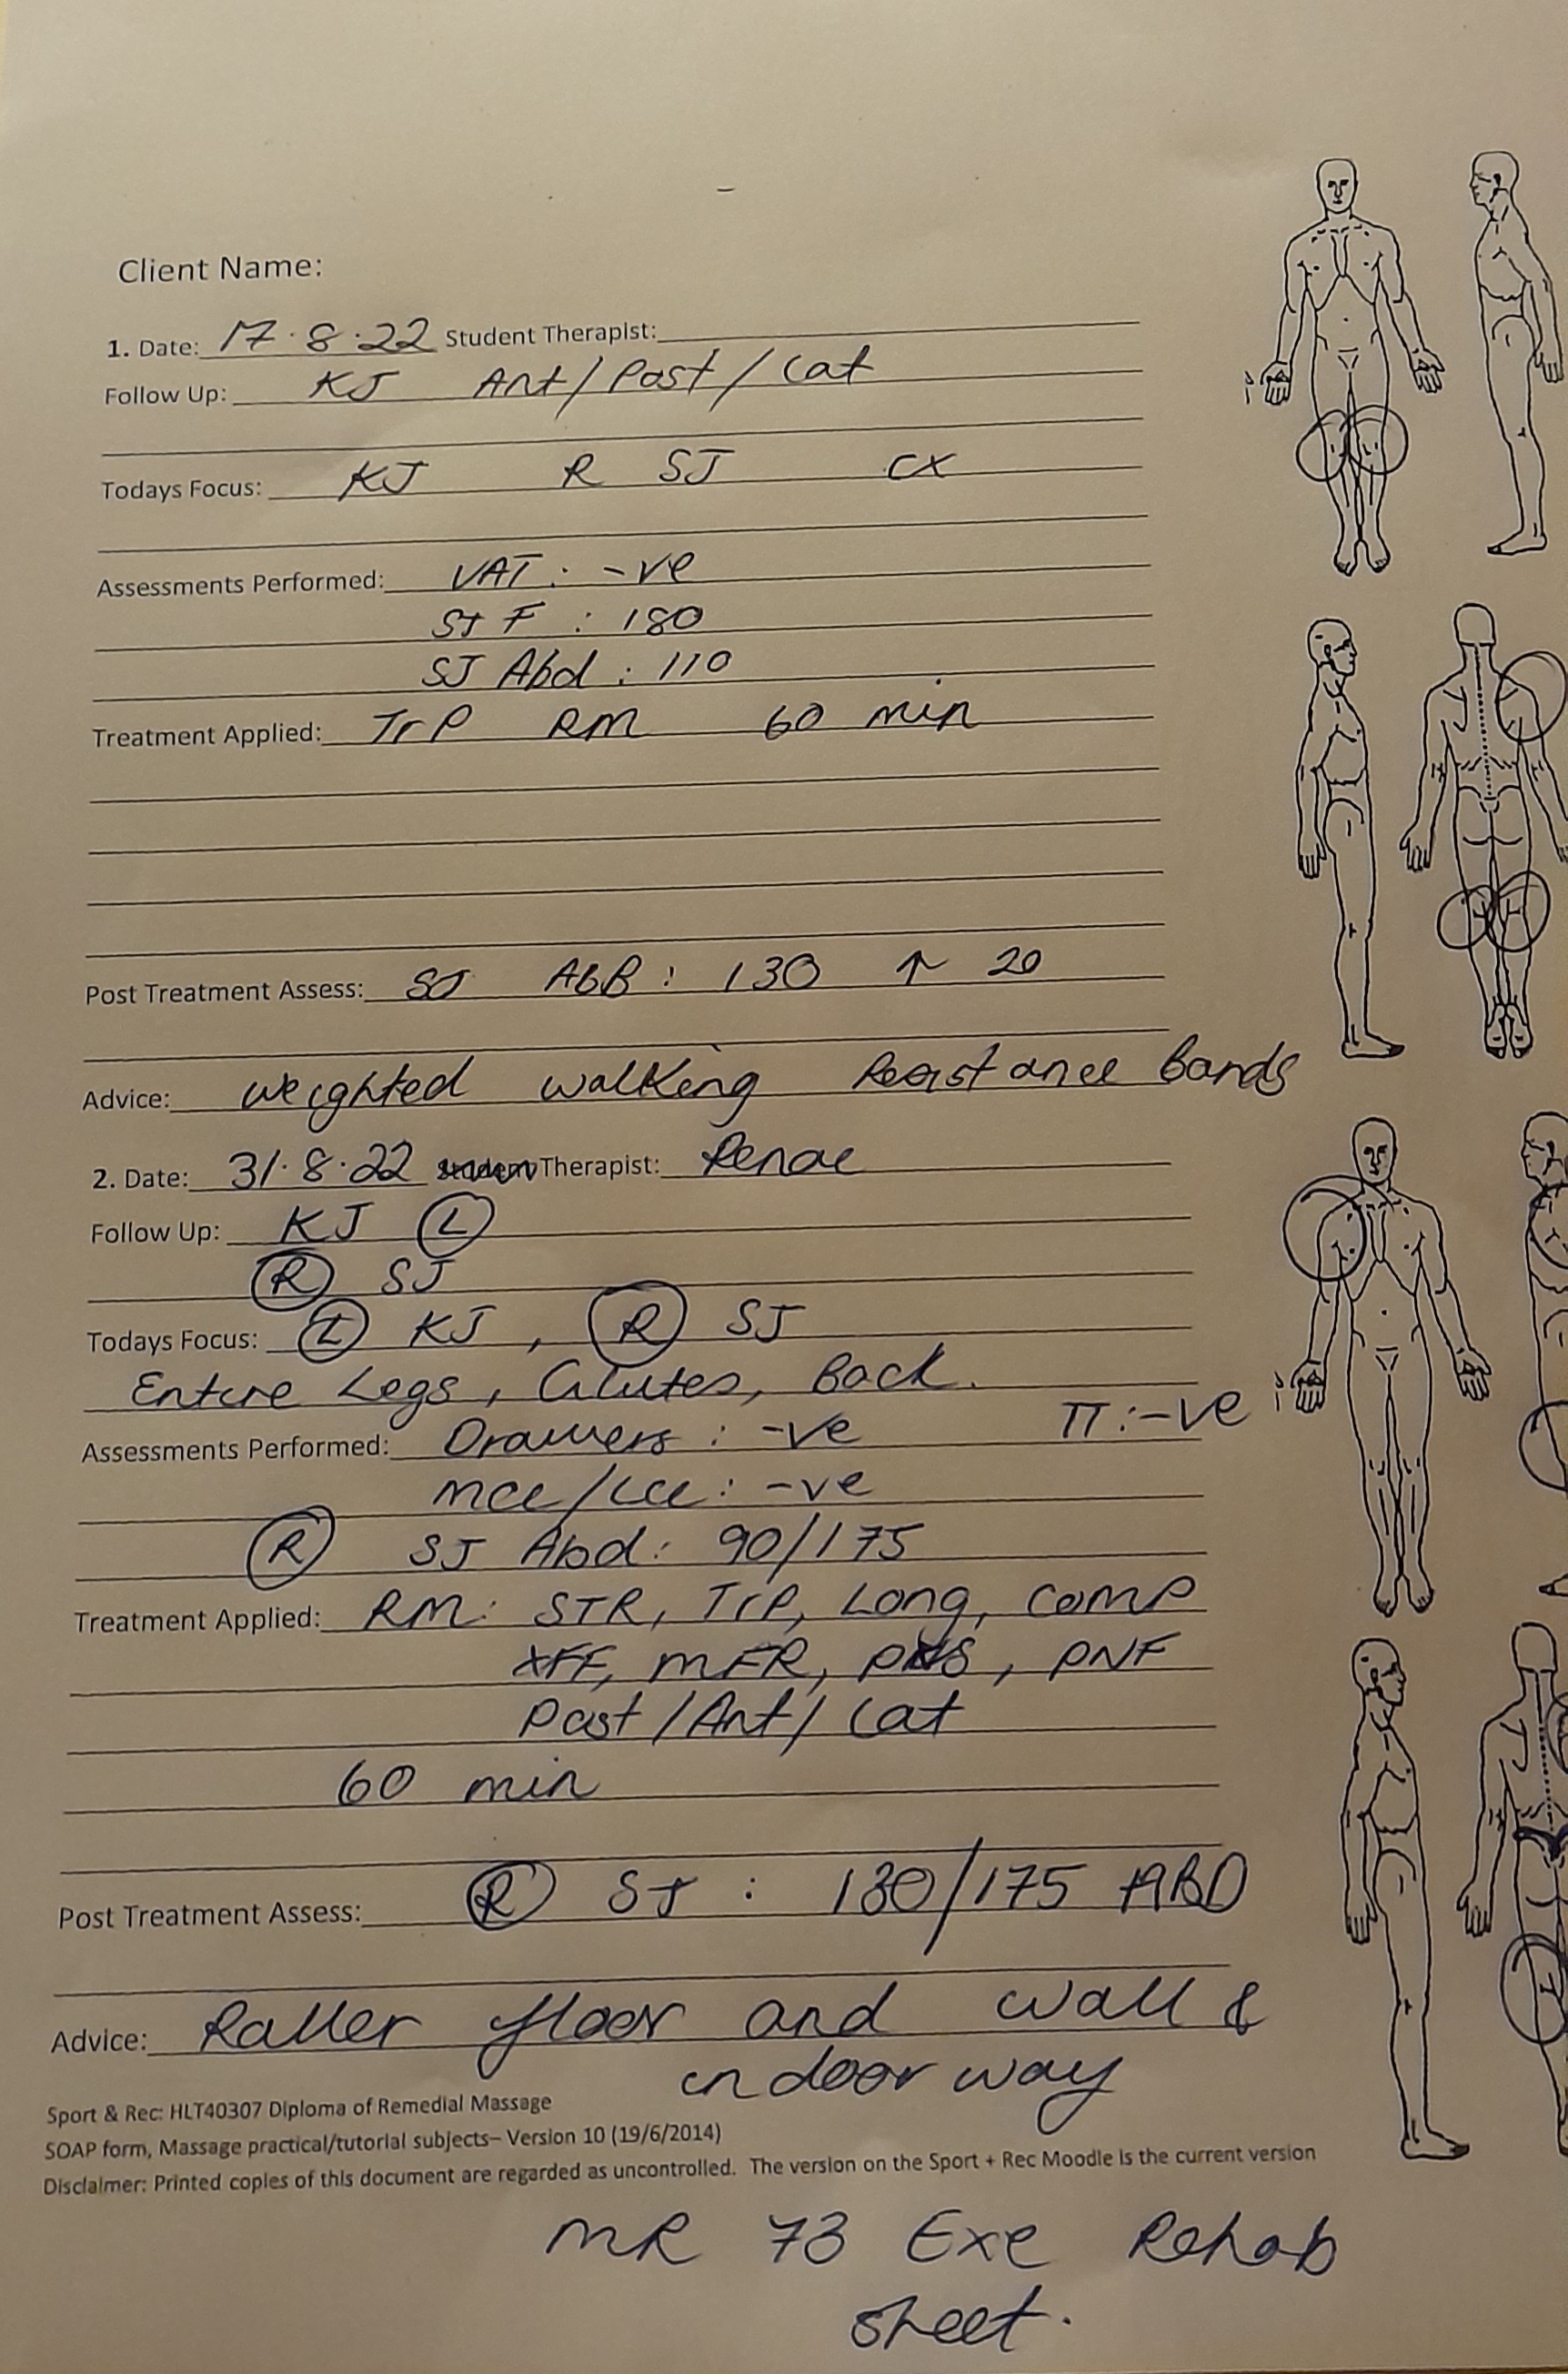 Client Name:
1. Date: 17.8.22 Student Therapist:
Follow Up: KJ Ant/Post/Lat
Todays Focus: KJ R SJ CX
Assessments Performed: VAT: -ve
SJ F : 180
SJ Abd : 110
Treatment Applied: TrP RM 60 min
Post Treatment Assess: SJ ABD : 130 ↑ 20
Advice: weighted walking Resistance bands
2. Date: 31.8.22 Therapist: Renae
Follow Up: KJ L
R SJ
Todays Focus: L KJ, R SJ
Entire Legs, Glutes, Back.
Assessments Performed: Drawers : -ve TT:-ve
MCL/LCL: -ve
R SJ Abd: 90/175
Treatment Applied: RM: STR, TrP, Long, Comp
XFF, MFR, PNS, PNF
Post/Ant/Lat
60 min
Post Treatment Assess: R SJ : 130/175 ABD
Advice: Roller floor and wall &
in door way
Sport & Rec: HLT40307 Diploma of Remedial Massage
SOAP form, Massage practical/tutorial subjects– Version 10 (19/6/2014)
Disclaimer: Printed copies of this document are regarded as uncontrolled. The version on the Sport + Rec Moodle is the current version
MR 73 Exe Rehab
sheet.